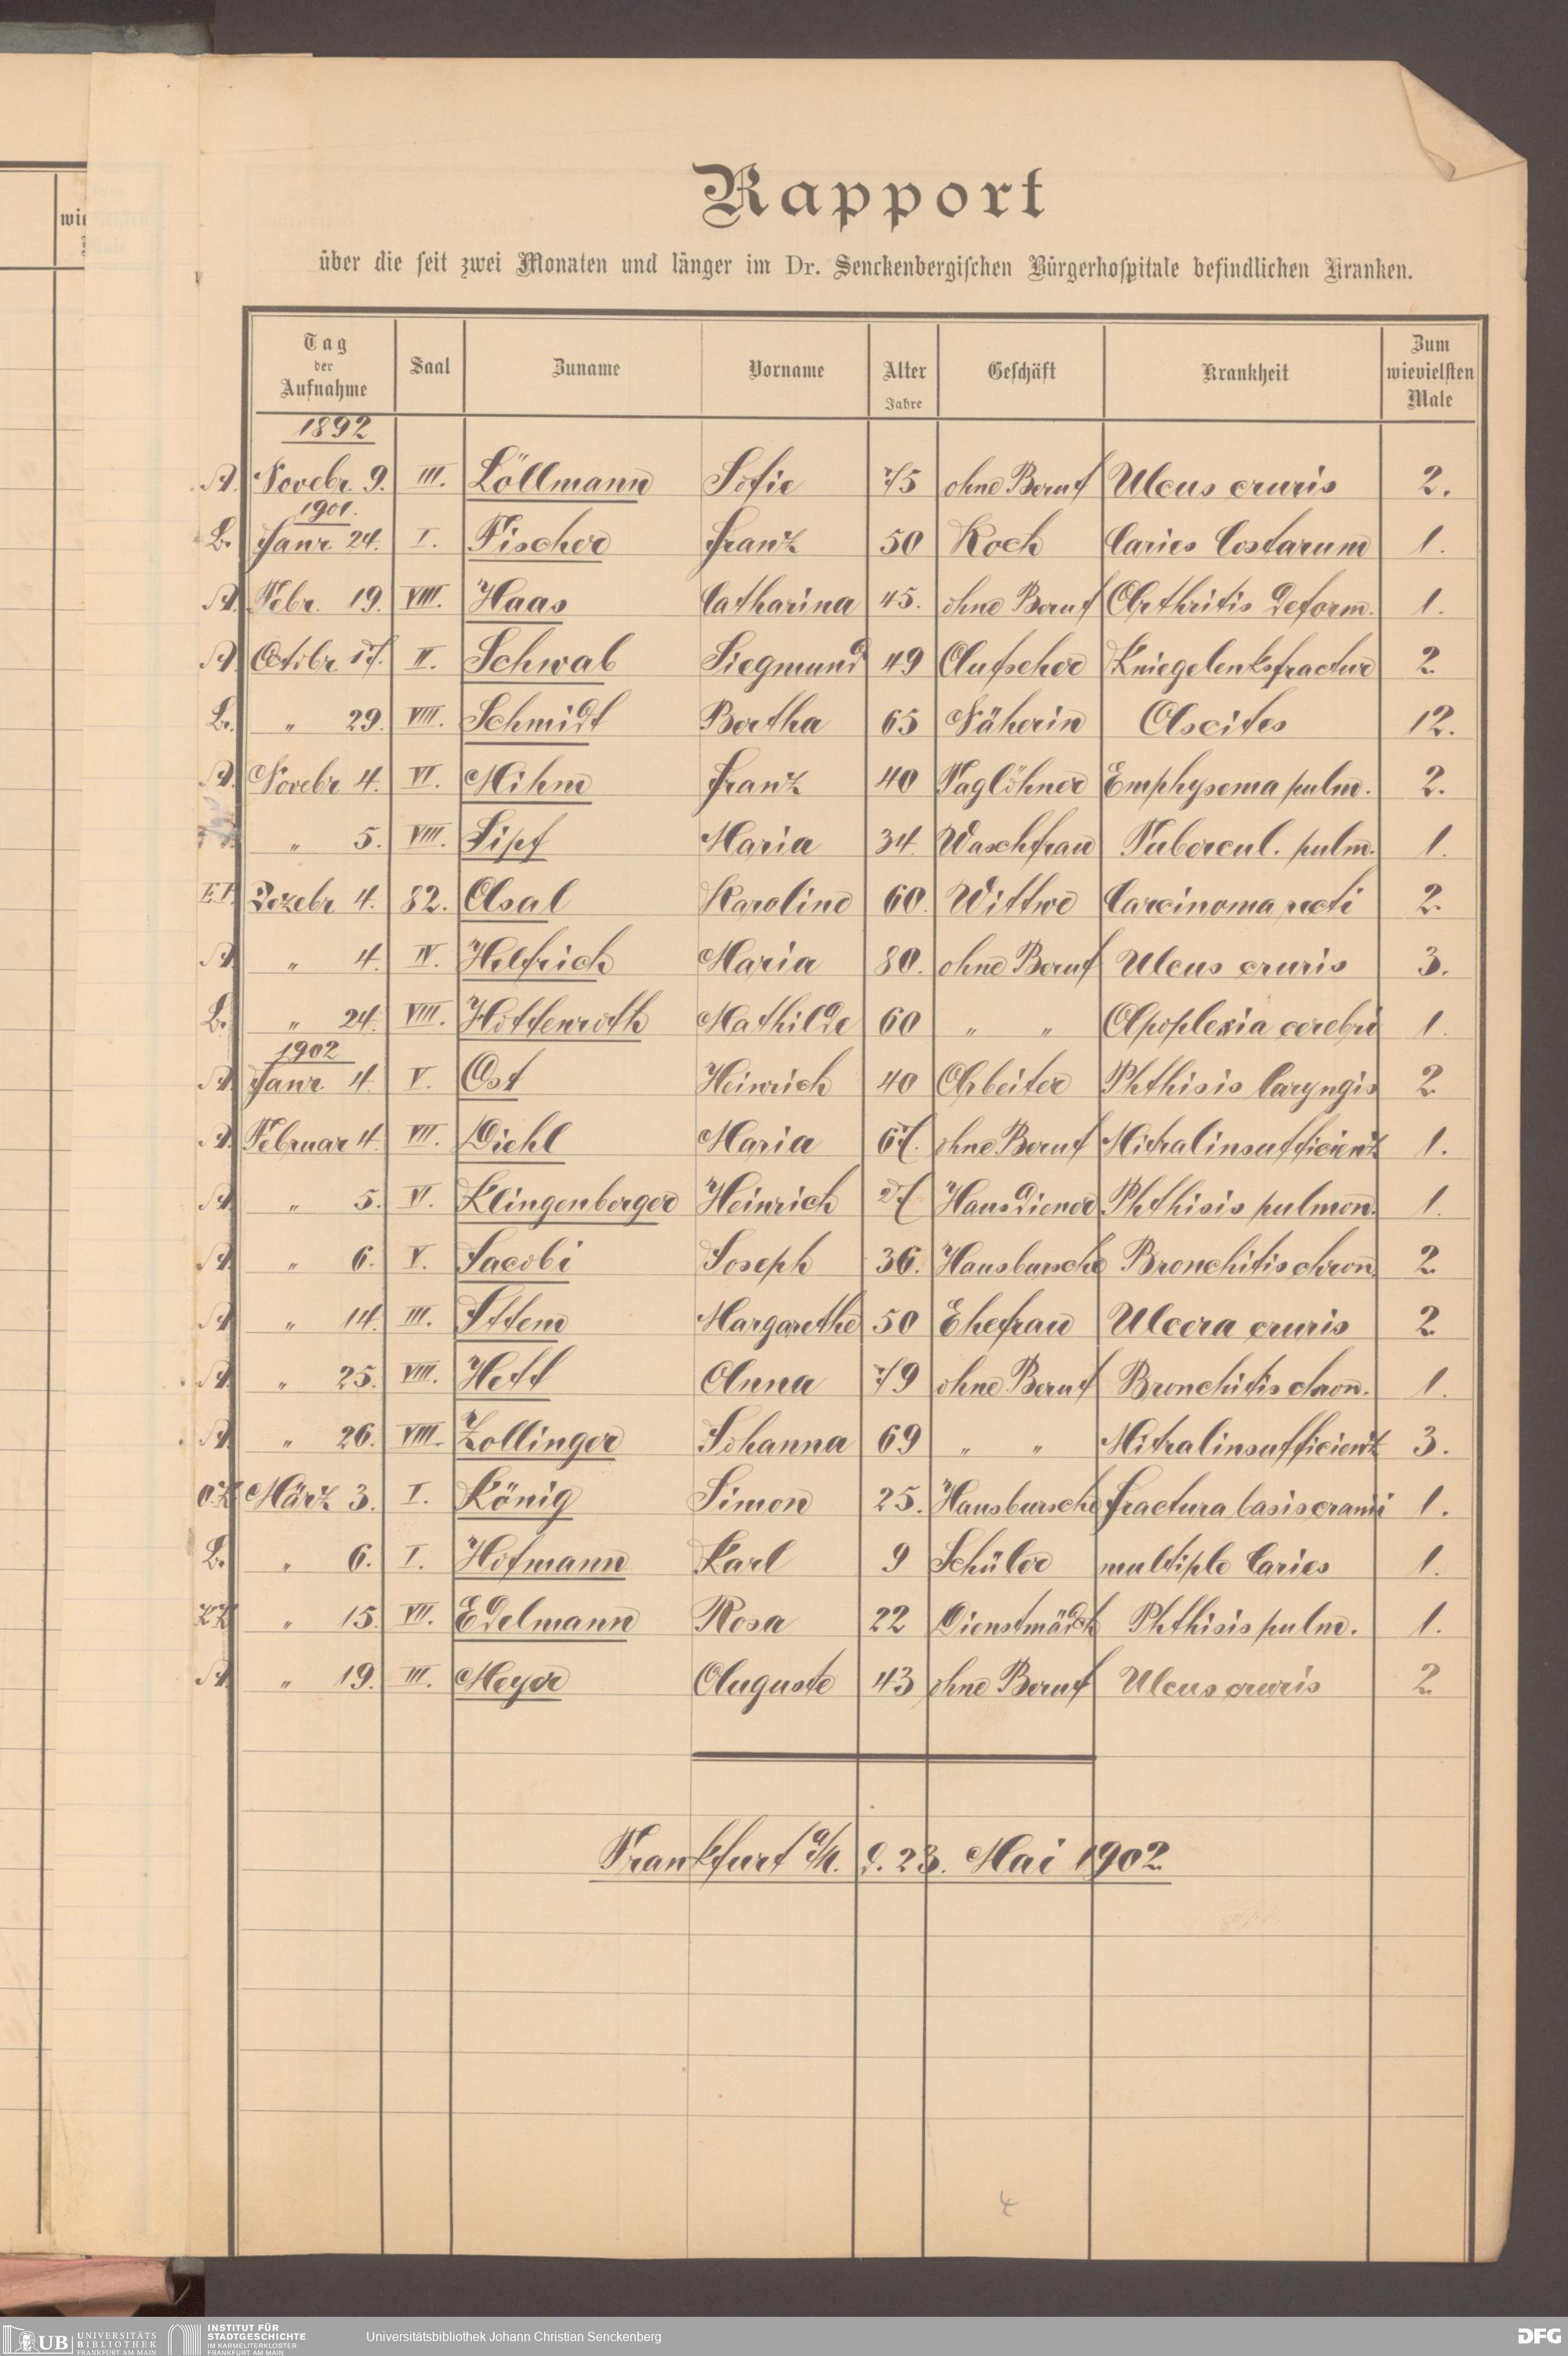 wie
Rapport
über die seit zwei Monaten und länger im Dr. Senckenbergischen Bürgerhospitale befindlichen Kranken.
Tag der Aufnahme | Saal | Zuname | Vorname | Alter Jahre | Geschäft | Krankheit | Zum wievielsten Male
1892
A. Novebr. 9. III. Löllmann Sofie 75 ohne Beruf Ulcus cruris 2.
1901.
L. Janr. 24. I. Fischer Franz 50 Koch Caries Costarum 1.
A. Febr. 19. VIII. Haas Catharina 45. ohne Beruf Arthritis deform. 1.
A. Octobr 17. II. Schwab Siegmund 49 Aufseher Kniegelenksfractur 2
L. " 29. VIII. Schmidt Bertha 65 Näherin Ascites 12.
A. Novebr 4. VI. Mihm Franz 40 Taglöhner Emphysema pulm. 2.
" 5. VIII. Sipf Maria 34. Waschfrau Tubercul. pulm. 1.
E.I. Dezebr 4. 82. Asal Karoline 60. Wittwe Carcinoma recti 2
A. " 4. IV. Helfrich Maria 80. ohne Beruf Ulcus cruris 3.
L. " 24. VIII. Hottenroth Mathilde 60 " " Apoplexia cerebri 1.
1902
A. Janr. 4. V. Ost Heinrich 40 Arbeiter Phthisis laryngis 2
A. Februar 4. VII. Diehl Maria 67. ohne Beruf Mitralinsufficienz 1.
A. " 5. VI. Klingenberger Heinrich 27 Hausdiener Phthisis pulmon. 1.
A. " 6. V. Jacobi Joseph 36. Hausbursche Bronchitis chron. 2
A. " 14. III. Ittem Margarethe 50 Ehefrau Ulcera cruris 2
A. " 25. VIII. Hett Anna 79 ohne Beruf Bronchitis chron. 1.
A. " 26. VIII. Zollinger Johanna 69 " " Mitralinsufficienz 3.
O.K. März 3. I. König Simon 25. Hausbursche Fractura basis cranii 1.
L. " 6. I. Hofmann Karl 9 Schüler multiple Caries 1.
" 15. VII. Edelmann Rosa 22 Dienstmädch Phthisis pulm. 1.
A. " 19. III. Meyer Auguste 43 ohne Beruf Ulcus cruris 2
Frankfurt a/M. d. 23. Mai 1902
4
UB UNIVERSITÄTS BIBLIOTHEK FRANKFURT AM MAIN
INSTITUT FÜR STADTGESCHICHTE IM KARMELITERKLOSTER FRANKFURT AM MAIN
Universitätsbibliothek Johann Christian Senckenberg
DFG